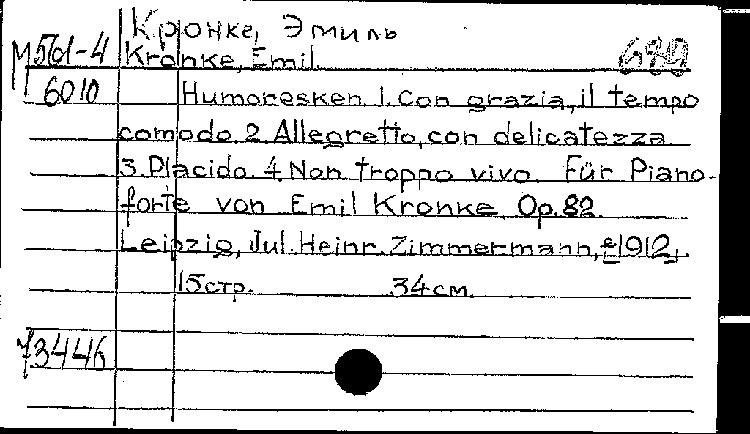 Кронке, Эмиль
М561-4 Kronke, Emil
6010 Humoresken 1. Con grazia, il tempo
comodo. 2. Allegretto, con delicatezza
3. Placido. 4. Non troppo vivo. Für Piano-
forte von Emil Kronke Op. 82.
Leipzig, Jul. Heinr. Zimmermann, c1912,
15 стр. 34 см.
73446